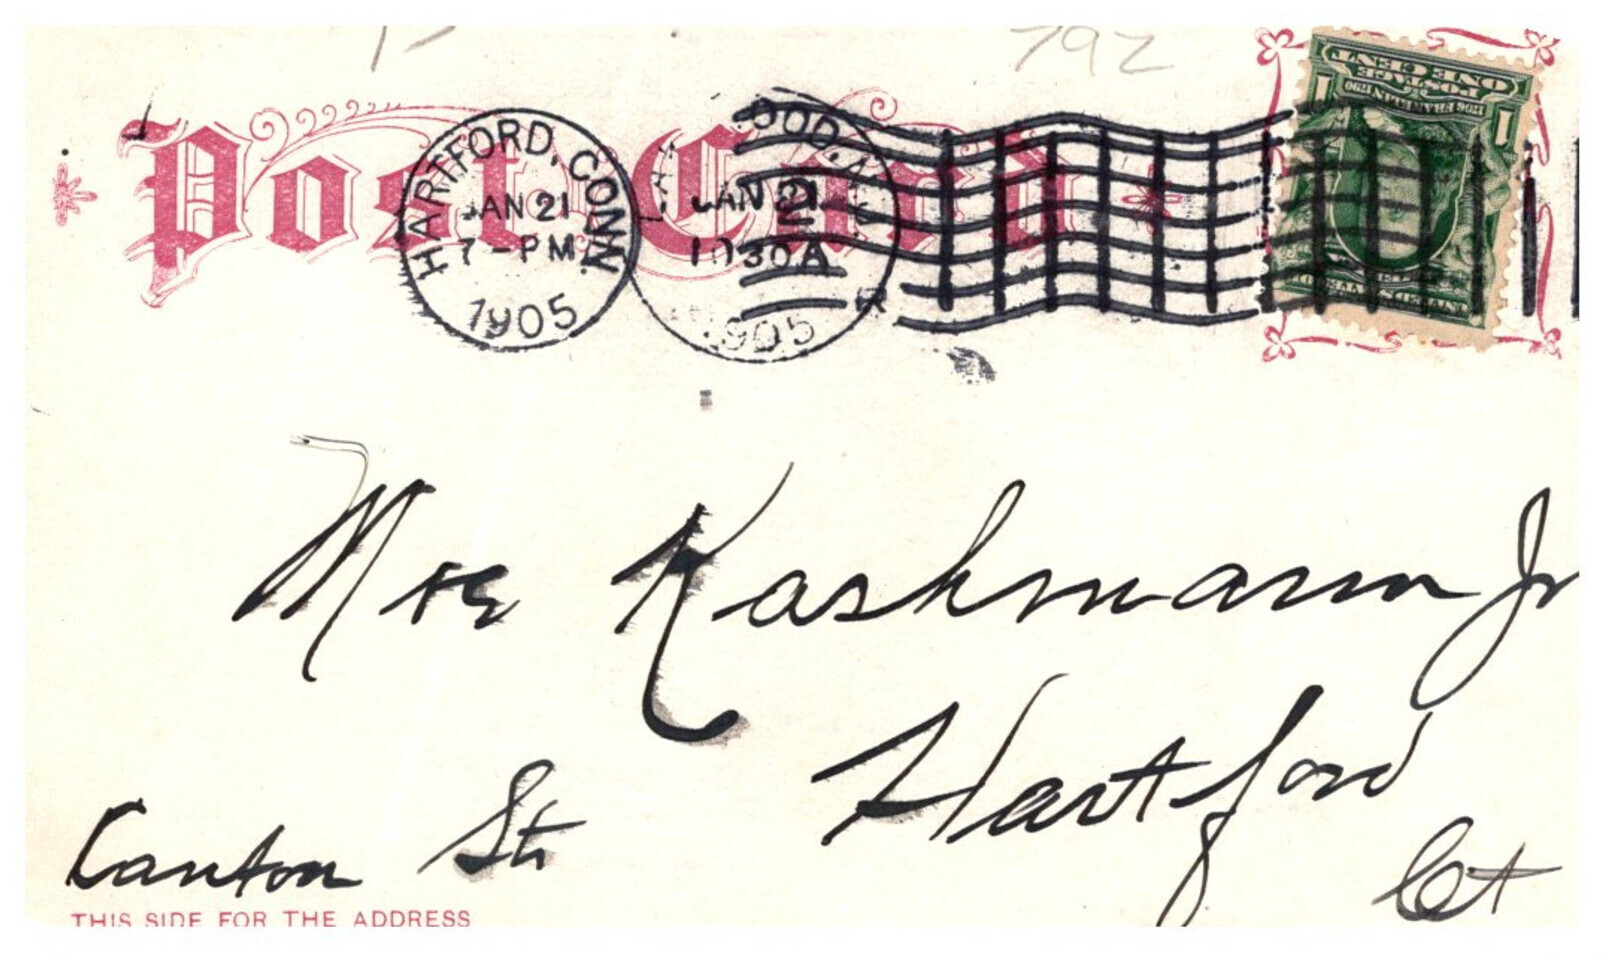 792
Post Card
HARTFORD, CONN.
JAN 21
7-PM
1905
JAN 21
1030A
1905
POSTAGE
ONE CENT
1706 FRANKLIN 1790
1 1
Mrs Kashmann Jr
Hartford
Canton St
Ct
THIS SIDE FOR THE ADDRESS